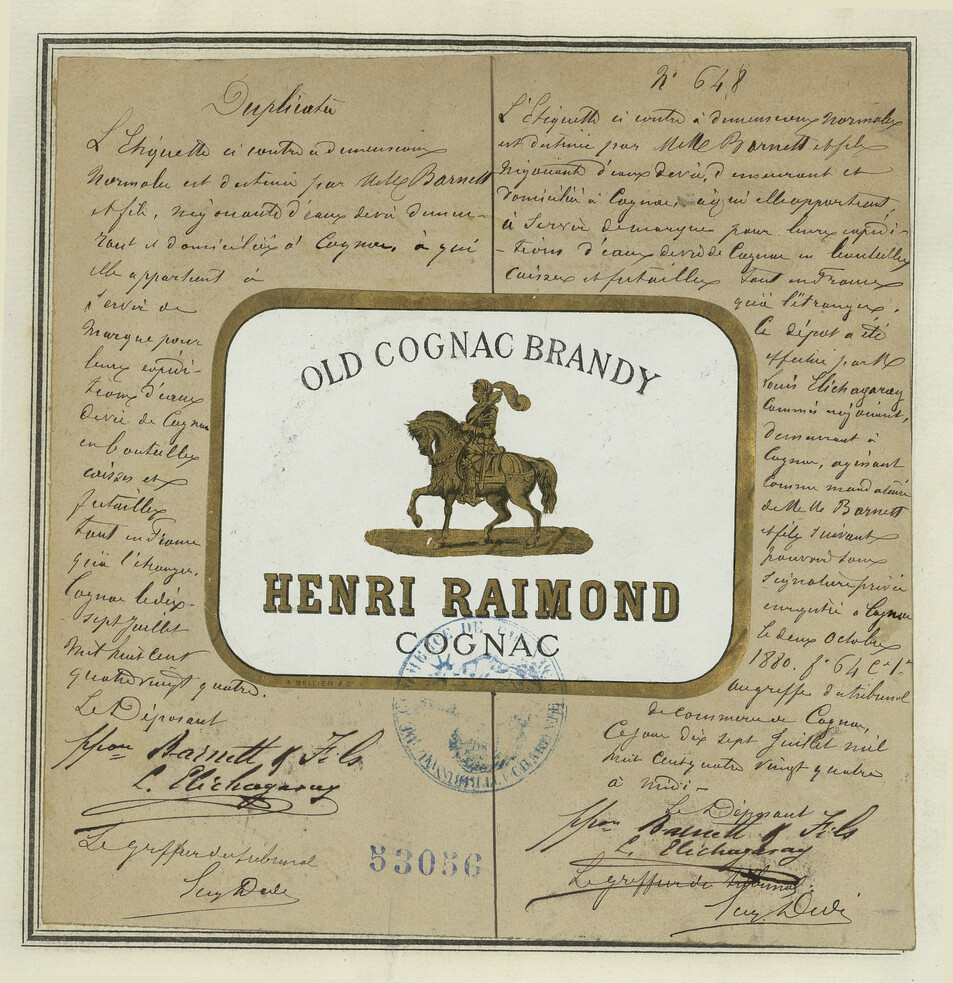 Duplicata
L'Etiquette ci contre a dimensions
Normales est destinée par MM Barnett
et fils, négociants d'eaux de vie demeu-
rant et domiciliés à Cognac, à qui
elle appartient à
servir de
Marque pour
leurs expédi-
tions d'eaux
de vie de Cognac
en bouteilles
caisses et
futailles
tant en France
qu'à l'étranger.
Cognac le dix-
sept Juillet
Mil huit cent
quatre vingt quatre.
Le Déposant
ppon Barnett & Fils
L. Elichagaray
Le greffier du tribunal
N° 648
L'Etiquette ci contre à dimensions normales
est destinée par MM Barnett et fils
négociants d'eaux de vie, demeurant et
domiciliés à Cognac, à qui elle appartient,
à servir de marque pour leurs expédi-
-tions d'eaux de vie de Cognac en bouteilles
caisses et futailles tant en France
qu'à l'étranger.
Ce dépôt a été
effectué par M
Louis Elichagaray
Commis négociant,
demeurant à
Cognac, agissant
comme mandataire
de MM Barnett
et fils suivant
pouvoir sous
signature privée
enregistré à Cognac
le deux Octobre
1880. f° 64 C 1re
au greffe du tribunal
de commerce de Cognac,
Ce jour dix sept Juillet mil
huit cent quatre vingt quatre
à midi -
Le Déposant
ppon Barnett & Fils
L. Elichagaray
Le greffier du tribunal.
OLD COGNAC BRANDY
HENRI RAIMOND
COGNAC
53056